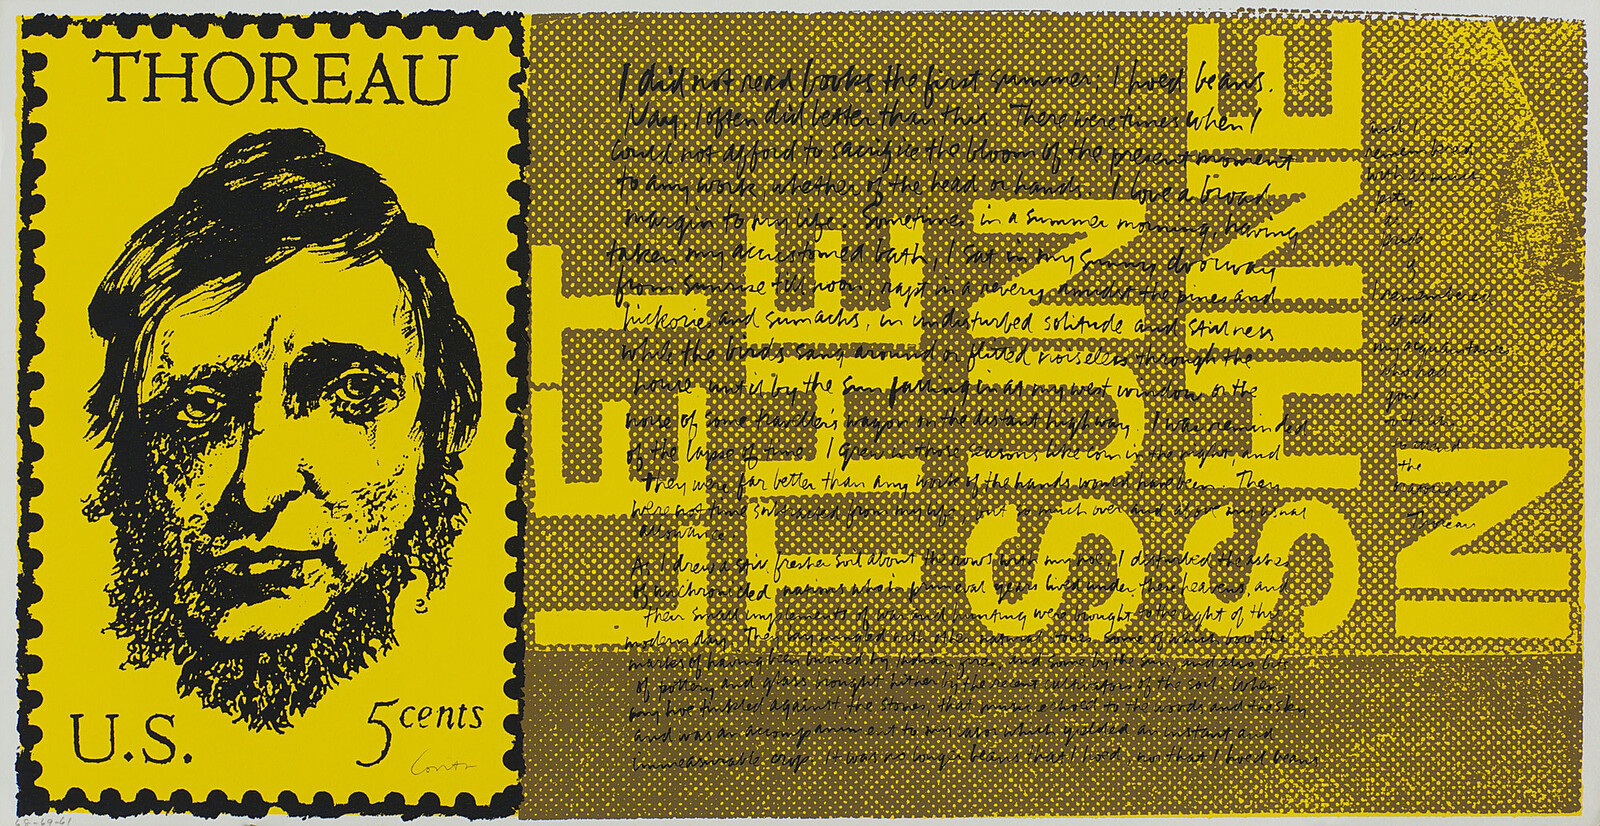 THOREAU
U.S.
5 cents
Corita
68-69-61
LET
THE
SUN
SHINE
IN
I did not read books the first summer; I hoed beans.
Nay, I often did better than this. There were times when I
could not afford to sacrifice the bloom of the present moment
to any work, whether of the head or hands. I love a broad
margin to my life. Sometimes, in a summer morning, having
taken my accustomed bath, I sat in my sunny doorway
from sunrise till noon, rapt in a revery, amidst the pines and
hickories and sumachs, in undisturbed solitude and stillness
while the birds sang around or flitted noiseless through the
house, until by the sun falling in at my west window, or the
noise of some traveller's wagon on the distant highway, I was reminded
of the lapse of time. I grew in those seasons like corn in the night, and
they were far better than any work of the hands would have been. They
were not time subtracted from my life, but so much over and above my usual
allowance.
As I drew a still fresher soil about the rows with my hoe, I disturbed the ashes
of unchronicled nations who in primeval years lived under these heavens, and
their small implements of war and hunting were brought to the light of this
modern day. They lay mingled with other natural stones, some of which bore the
marks of having been burned by Indian fires, and some by the sun, and also bits
of pottery and glass brought hither by the recent cultivators of the soil. When
my hoe tinkled against the stones, that music echoed to the woods and the sky
and was an accompaniment to my labor which yielded an instant and
immeasurable crop. It was no longer beans that I hoed, nor that I hoed beans
and I
remembered
with as much
pity
as
pride
if
I remembered
at all
my acquaintances
who had
gone
to the city
to attend
the
oratorios
Thoreau